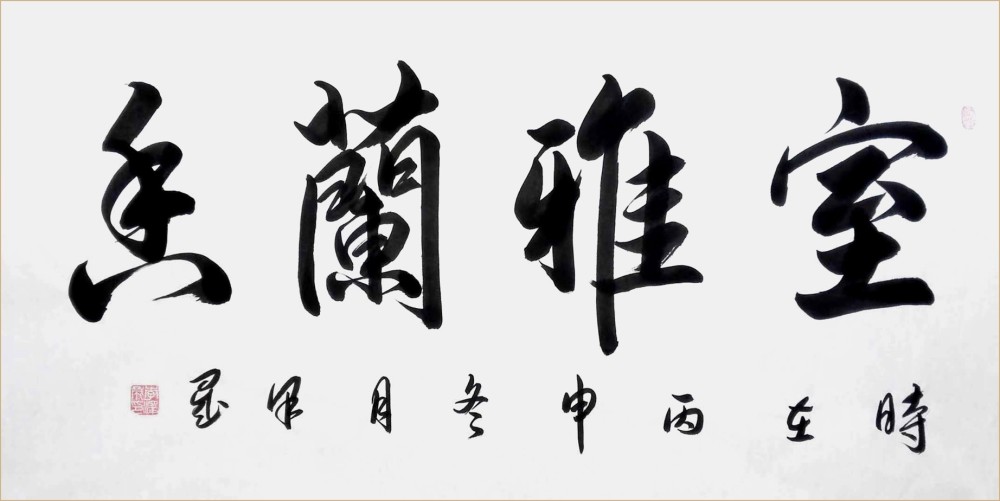 室雅蘭香
時在丙申冬月